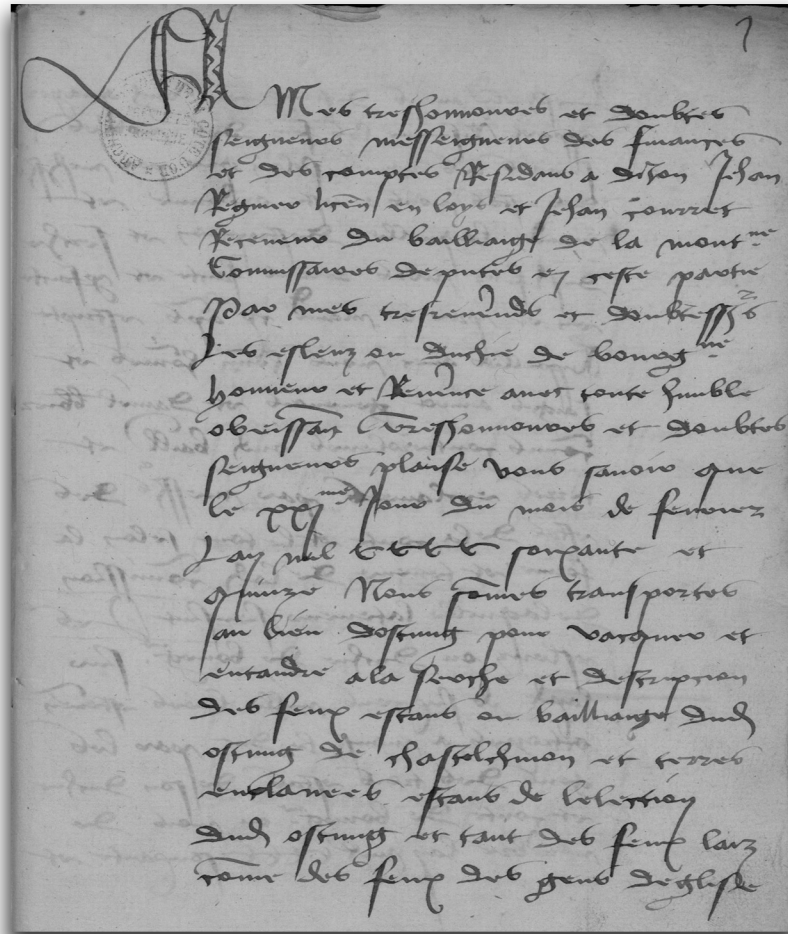 A Mes treshonnores et doubtes
seigneurs messeigneurs des finances
et des comptes Residans a dijon Jehan
Regnier licen en loys et Jehan courret
Receveur du bailliaige de la mont.ne
Commissaires deputes en ceste partie
Par mes tresreverends et doubtes srs
Les esleuz ou duchie de bourg.ne
honneur et Reverence avec toute humble
obeissan Treshonnores et doubtes
seigneurs plaise vous savoir que
le xxj me Jour du mois de fevrier
Lan mil CCCC soixante et
quinze Nous somes transportes
au lieu dostung pour vacquer et
entandre a la serche et description
des feux estans ou bailliaige dud
ostung de chastelchinon et terres
enclavees estans de lelection
dud ostung et tant des feux laiz
come des feux des gens deglise